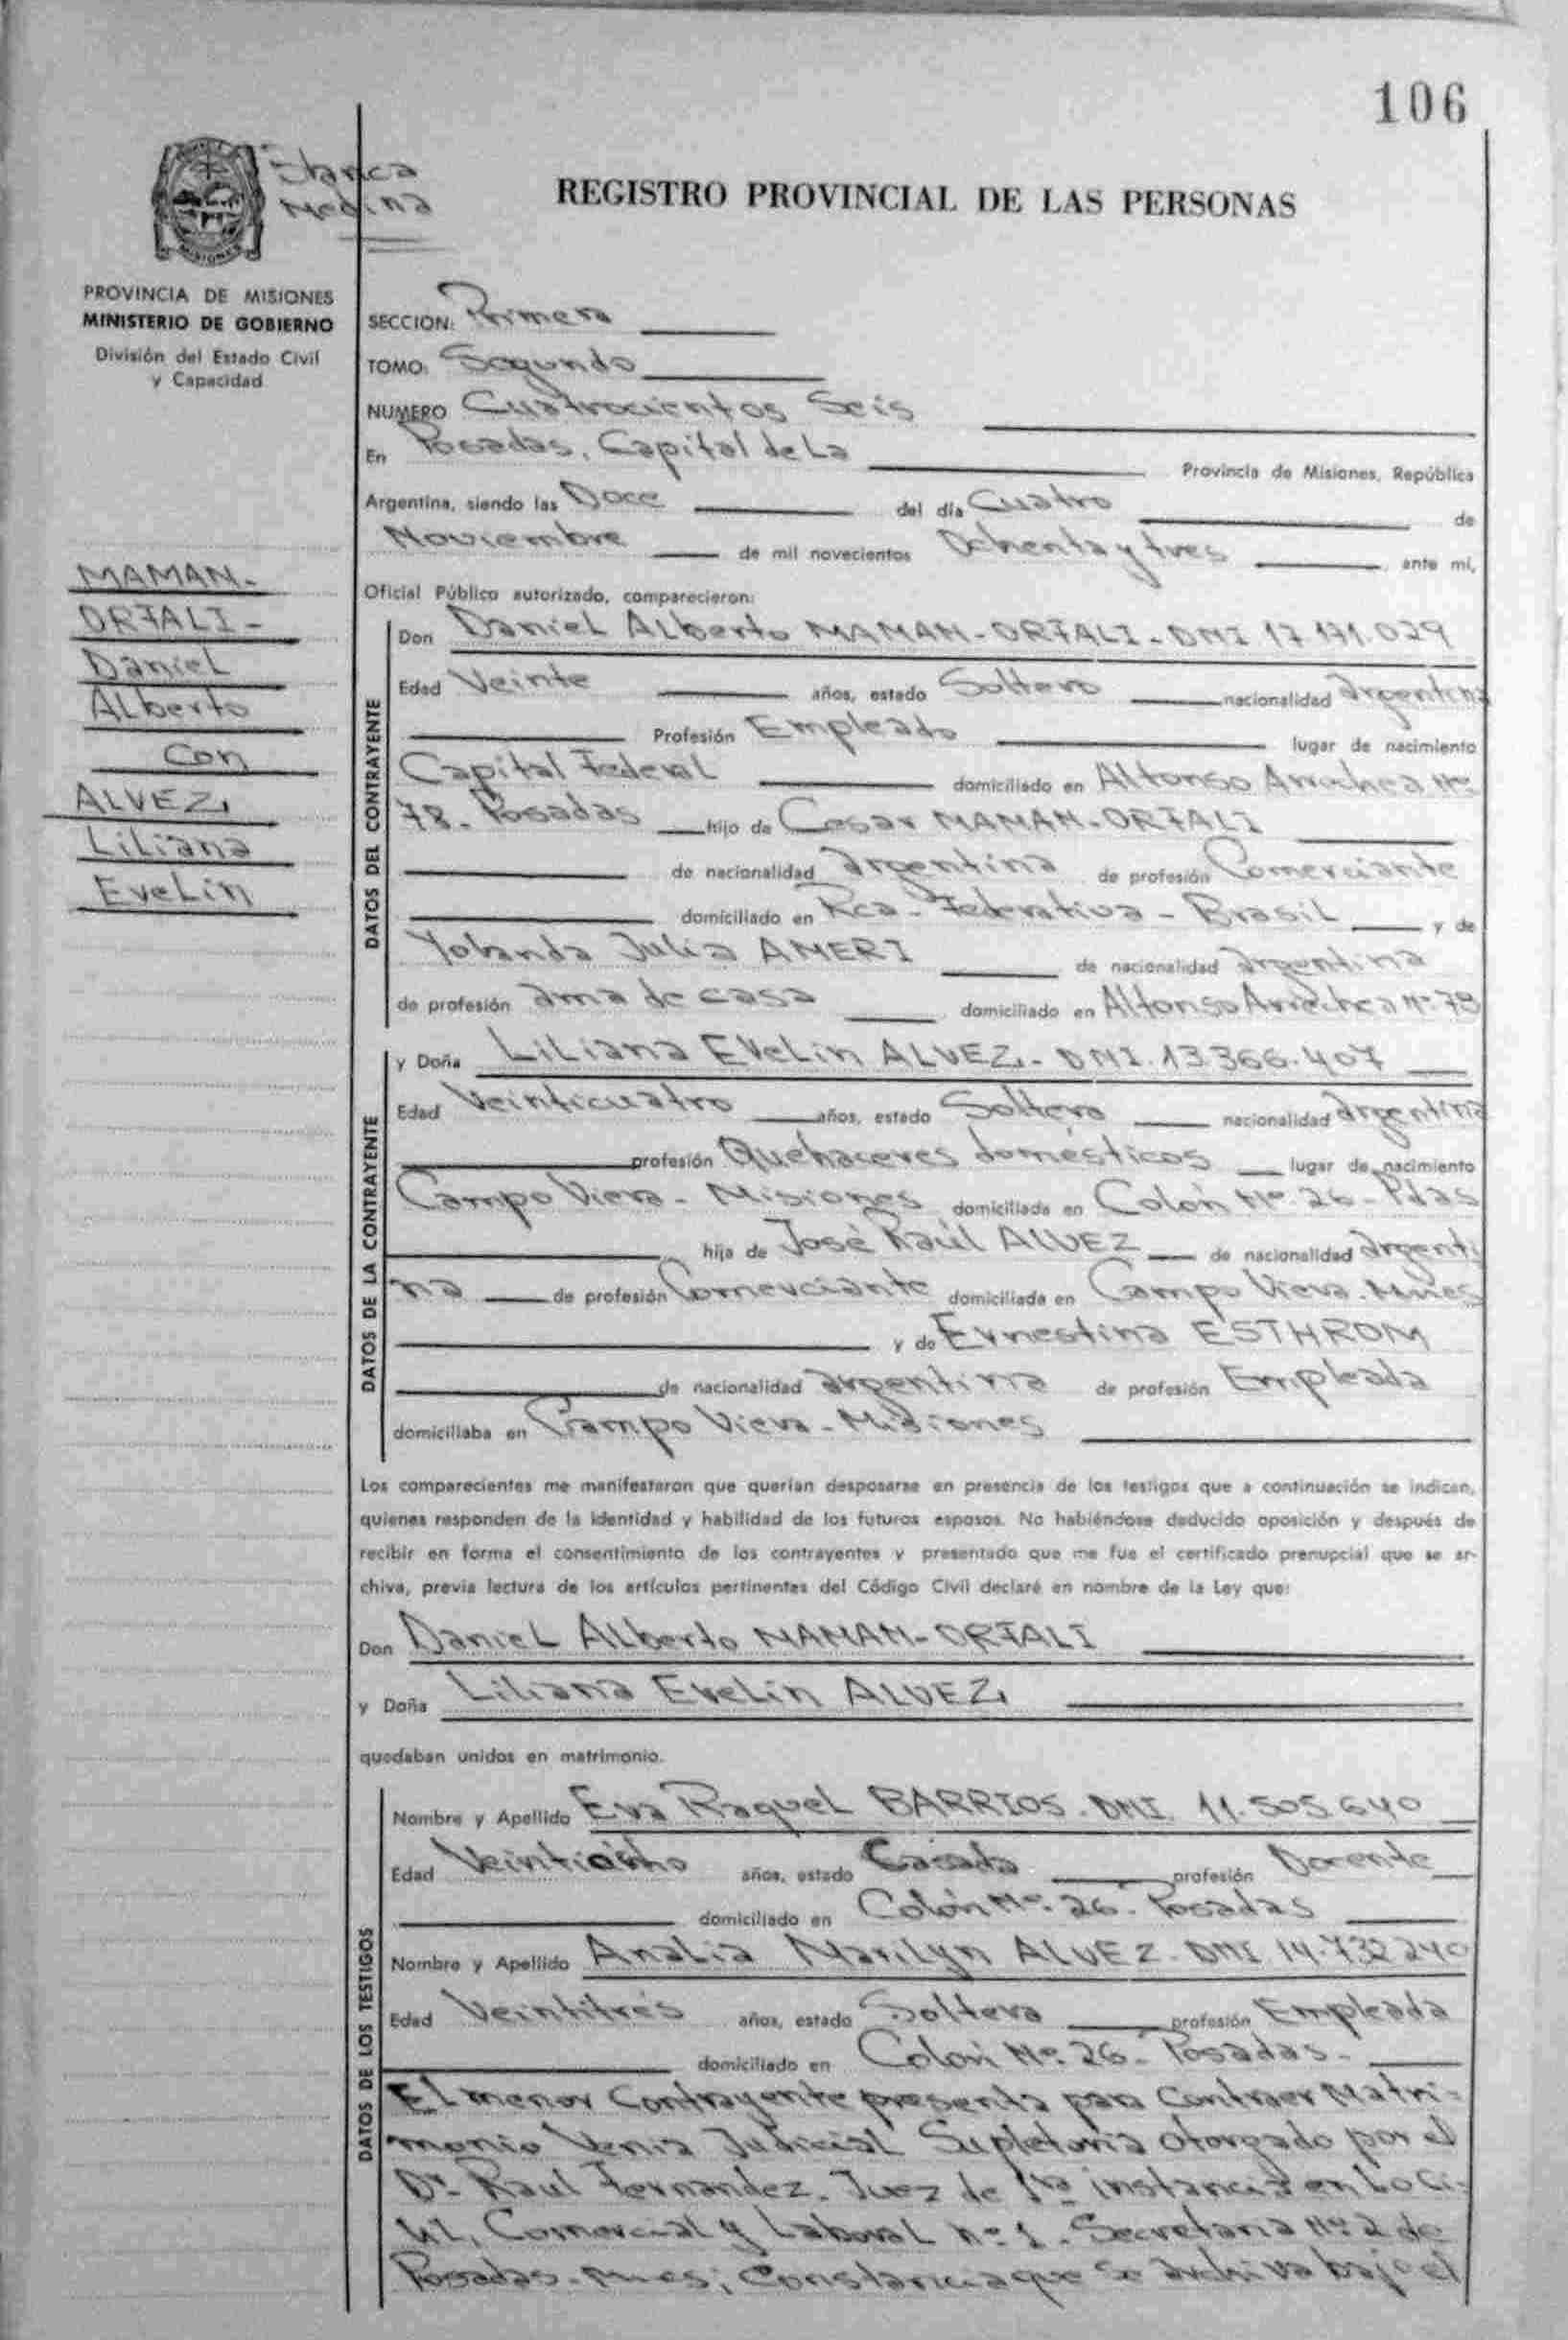 106
Blanca
Medina
MISIONES
REGISTRO PROVINCIAL DE LAS PERSONAS
PROVINCIA DE MISIONES
MINISTERIO DE GOBIERNO
División del Estado Civil
y Capacidad
MAMAN-
ORTALI-
Daniel
Alberto
Con
ALVEZ,
Liliana
Evelin
SECCION: Primera
TOMO: Segundo
NUMERO Cuatrocientos Seis
En Posadas, Capital de La Provincia de Misiones, República
Argentina, siendo las Doce del día Cuatro de
Noviembre de mil novecientos Ochenta y tres ante mí,
Oficial Público autorizado, comparecieron:
DATOS DEL CONTRAYENTE
Don Daniel Alberto MAMAN-ORTALI-DNI 17.171.029
Edad Veinte años, estado Soltero nacionalidad argentina
Profesión Empleado lugar de nacimiento
Capital Federal domiciliado en Alfonso Arrechea Nº
78- Posadas hijo de Cesar MAMAN-ORTALI
de nacionalidad argentina de profesión Comerciante
domiciliado en Rca- Federativa - Brasil y de
Yolanda Julia AMERI de nacionalidad argentina
de profesión ama de casa domiciliado en Alfonso Arrechea Nº 78
DATOS DE LA CONTRAYENTE
y Doña Liliana Evelin ALVEZ,- DNI.13.366.407
Edad Veinticuatro años, estado Soltera nacionalidad argentina
profesión Quehaceres domésticos lugar de nacimiento
Campo Viera - Misiones domiciliada en Colón Nº 26- Pdas
hija de José Raúl ALVEZ de nacionalidad argenti
na de profesión Comerciante domiciliada en Campo Viera. Mnes
y de Ernestina ESTHROM
de nacionalidad argentina de profesión Empleada
domiciliaba en Campo Viera - Misiones
Los comparecientes me manifestaron que querían desposarse en presencia de los testigos que a continuación se indican,
quienes responden de la identidad y habilidad de los futuros esposos. No habiéndose deducido oposición y después de
recibir en forma el consentimiento de los contrayentes y presentado que me fue el certificado prenupcial que se ar-
chiva, previa lectura de los artículos pertinentes del Código Civil declaré en nombre de la Ley que:
Don Daniel Alberto MAMAN-ORTALI
y Doña Liliana Evelin ALVEZ,
quedaban unidos en matrimonio.
DATOS DE LOS TESTIGOS
Nombre y Apellido Eva Raquel BARRIOS. DNI. 11.505.640
Edad Veintiocho años, estado Casada profesión Docente
domiciliado en Colón Nº. 26- Posadas
Nombre y Apellido Analia Marilyn ALVEZ- DNI 14.732.240
Edad Veintitrés años, estado Soltera profesión Empleada
domiciliado en Colón Nº. 26- Posadas-
El menor Contrayente presenta para Contraer Matri-
monio Venia Judicial Supletoria otorgado por el
Dr. Raul Fernandez. Juez de 1ra instancia en Lo Ci-
vil, Comercial y Laboral nº 1 - Secretaria Nº 2 de
Posadas- Mnes; Constancia que se archiva bajo el